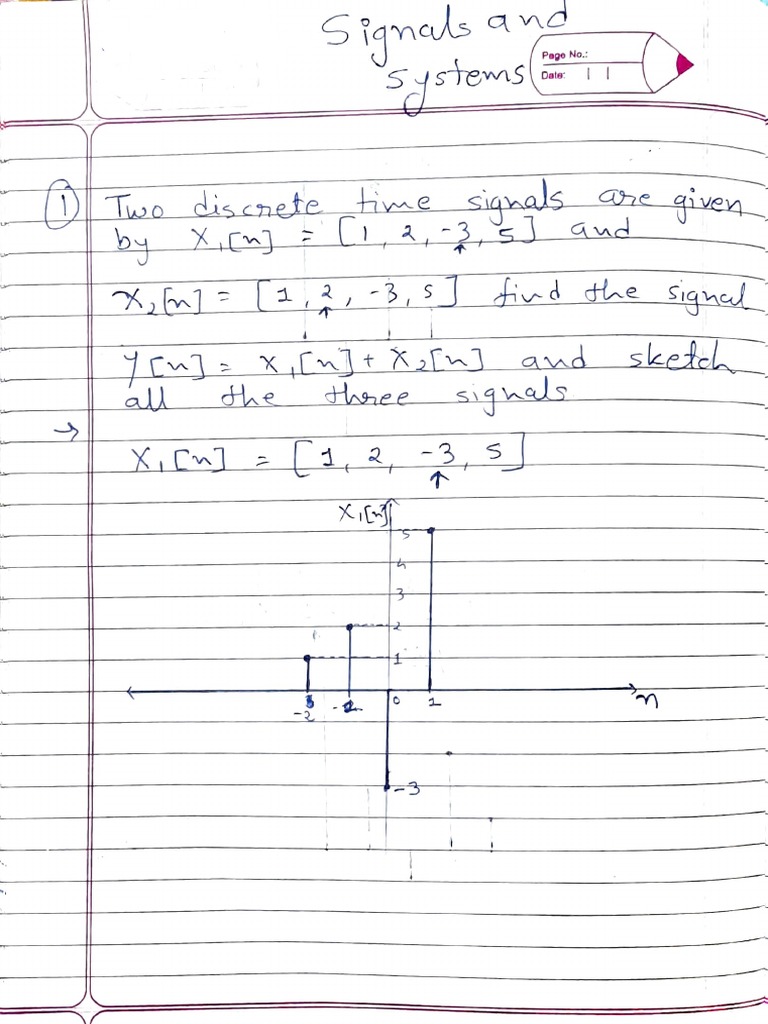 Signals and
systems
Page No.:
Date: | |
① Two discrete time signals are given
by X₁[n] = [1, 2, -3, 5] and
↑
x₂[n] = [1, 2, -3, 5] find the signal
↑
y[n] = x₁[n] + x₂[n] and sketch
all the three signals
→
X₁[n] = [1, 2, -3, 5]
↑
X₁[n]
5
4
3
2
1
-2 0 1 n
-3